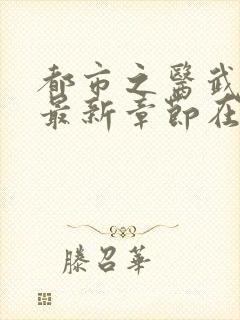 都市之醫武
最新章節在
滕召華